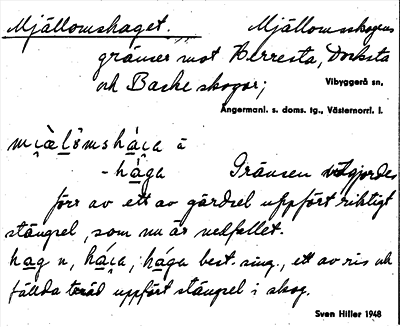 Mjällomshaget. Mjällomsskogens
gränser mot Herresta, Docksta
och Baske skogar; Vibyggerå sn,
Ångermanl. s. doms. tg., Västernorrl. l.
-hága Gränsen utgjordes
förr av ett av gärdsel uppfört riktigt
stängsel, som nu är nedfallet.
hag n, best. sing., ett av ris och
fällda träd uppfört stängsel i skog.
Sven Hiller 1948